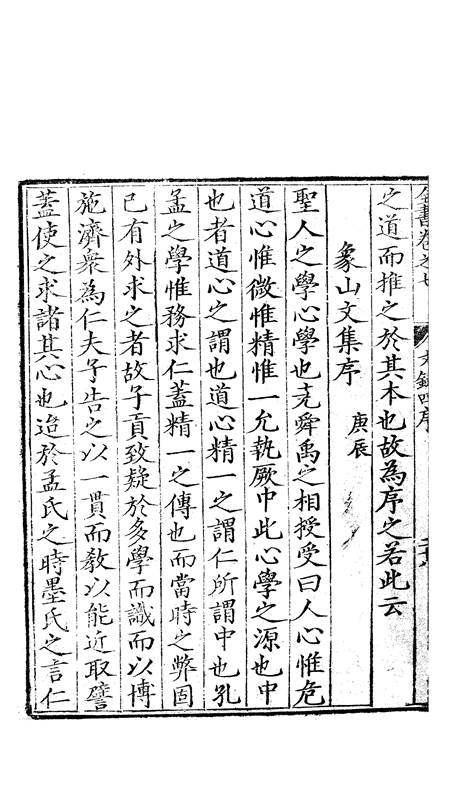 全書卷之七 文錄四序 二十八
之道而推之於其本也故為序之若此云
象山文集序 庚辰
聖人之學心學也堯舜禹之相授受曰人心惟危
道心惟微惟精惟一允執厥中此心學之源也中
也者道心之謂也道心精一之謂仁所謂中也孔
孟之學惟務求仁蓋精一之傳也而當時之弊固
已有外求之者故子貢致疑於多學而識而以博
施濟衆為仁夫子告之以一貫而教以能近取譬
蓋使之求諸其心也迨於孟氏之時墨氏之言仁